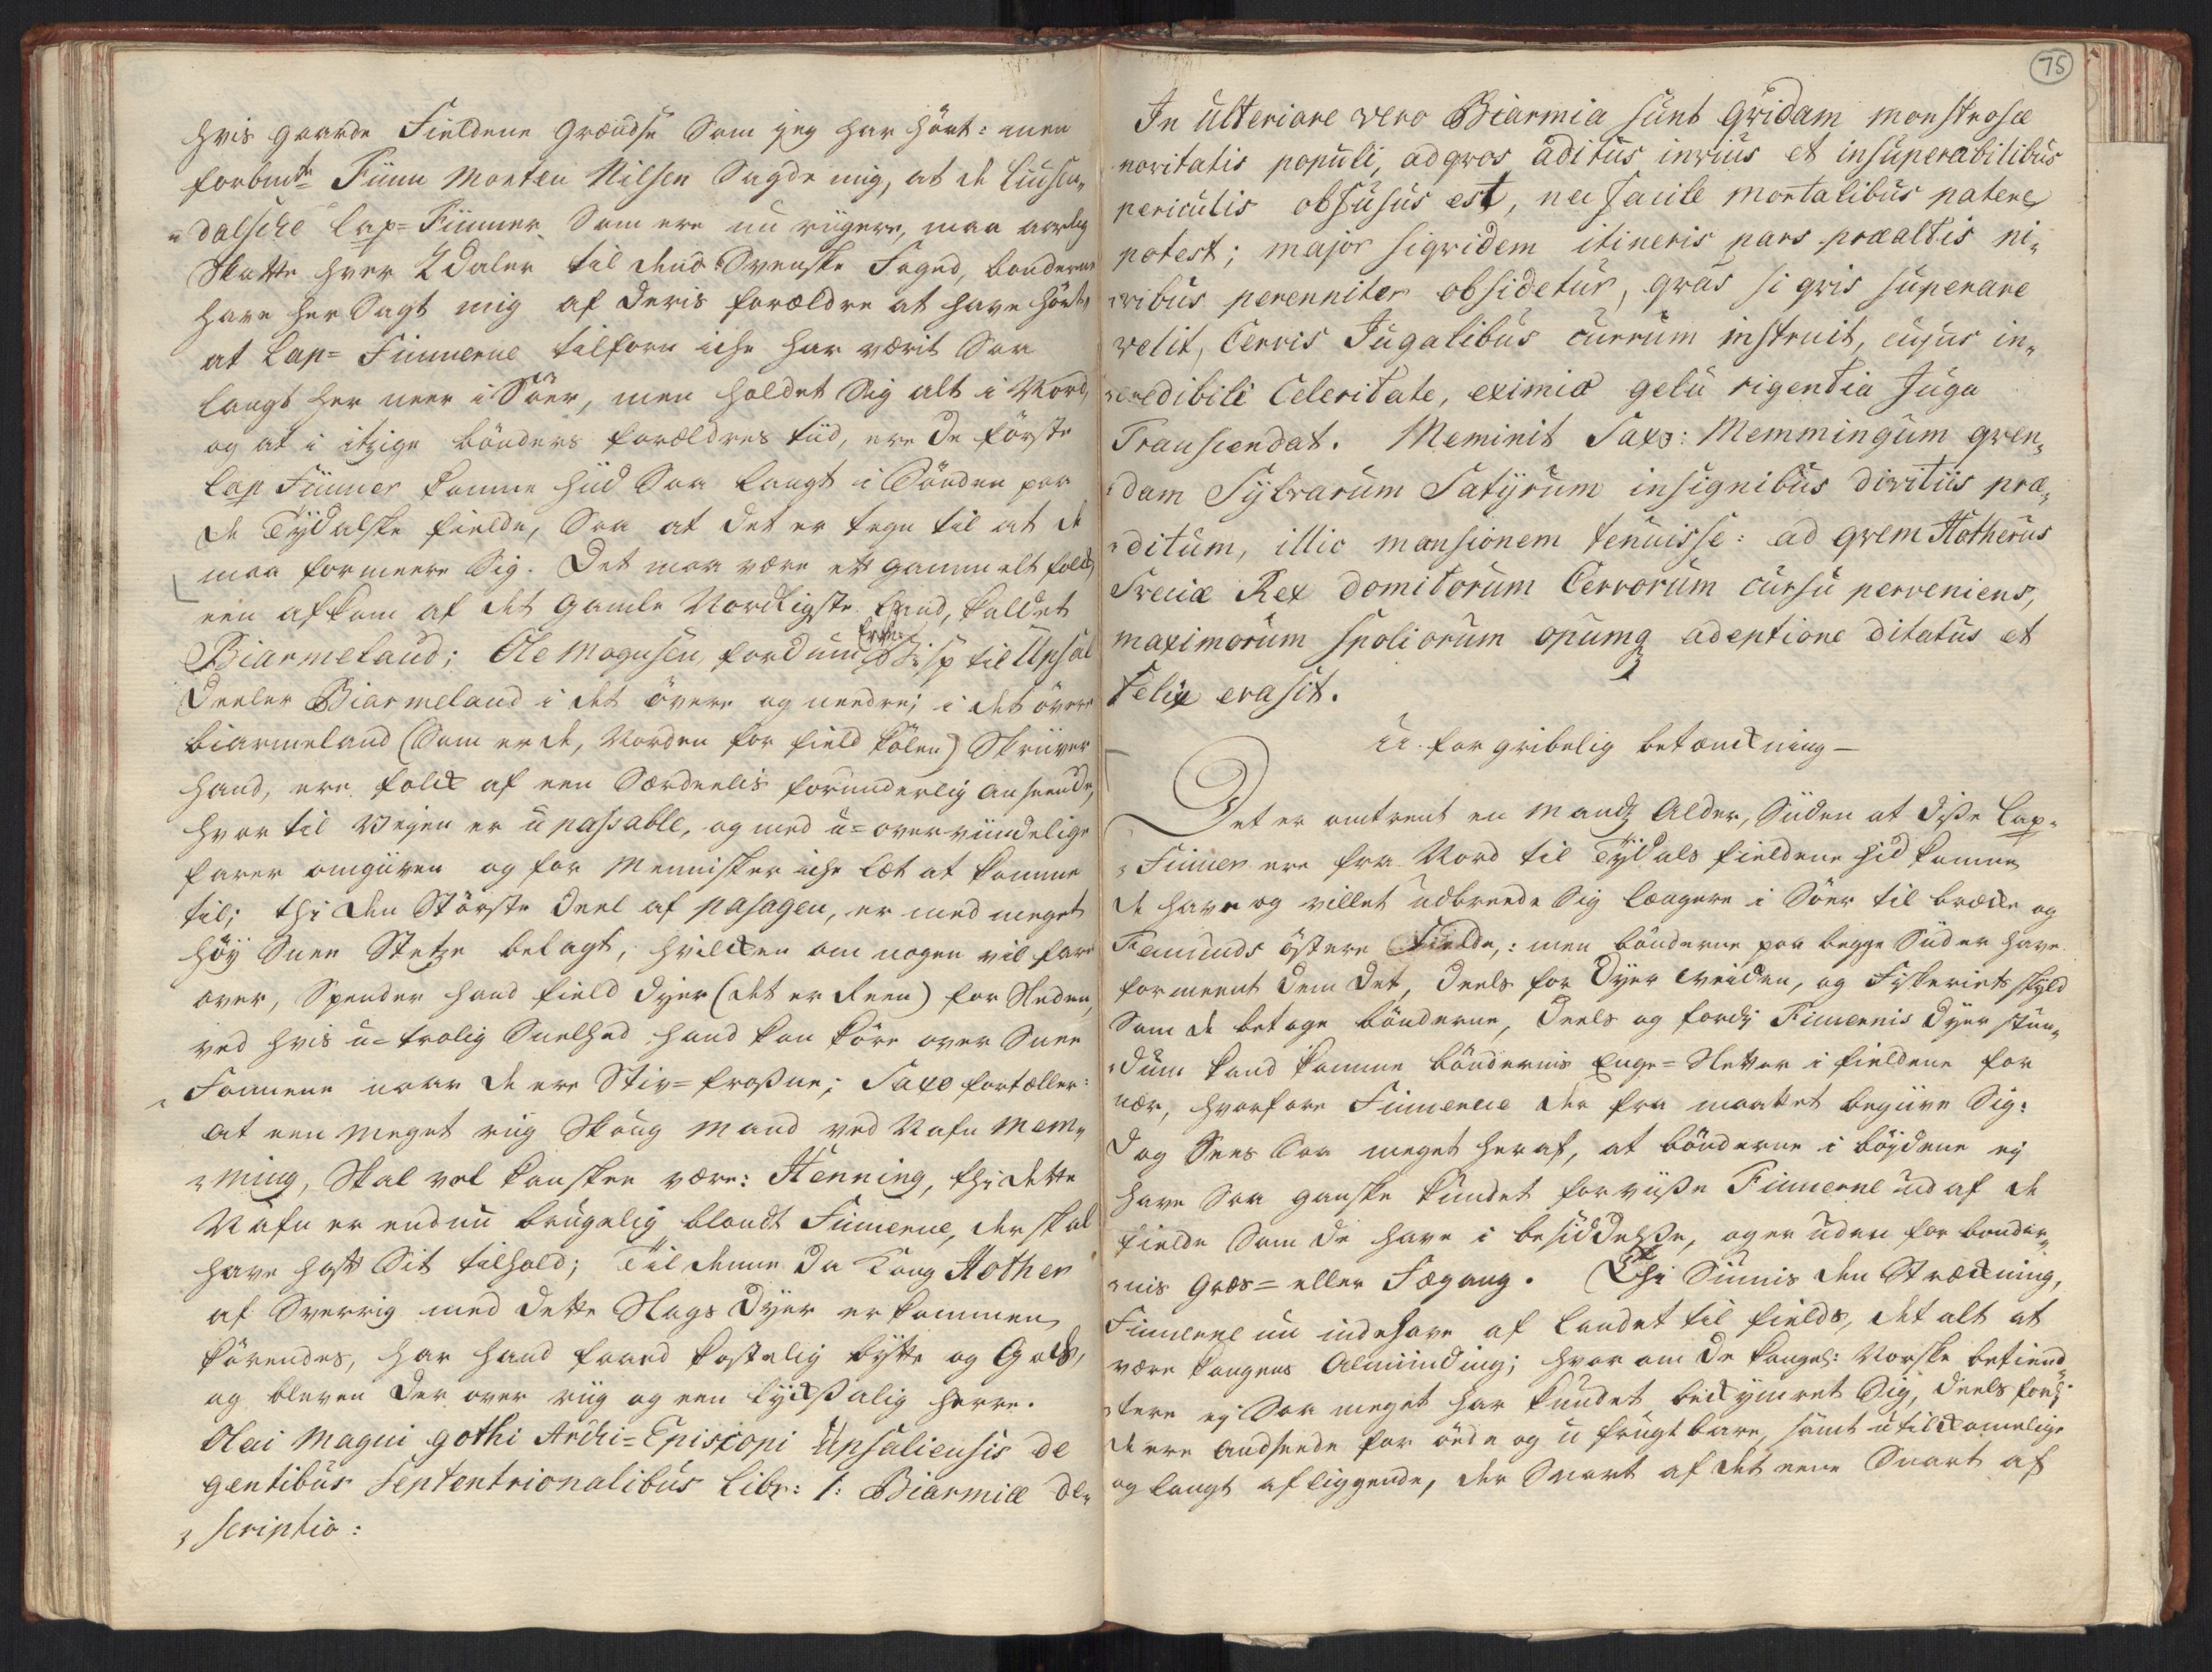 hvis gaarde Fieldene Grendse Som jeg har hört: men
forbmte Finn Morten Nilsen Sagde mig, at de Liusn„
„dalsche Lap=Finner Som ere nu rügere, maa aarlig
Skatte hver 2 daler til dend Svenske Foged, bönderne
have her Sagt mig af deris forældre at have hört,
at Lap=Finnerne tilforn iche har værit Saa
langt her neer i Söer, men holdet Sig alt i Nord,
og at i itzige bönders forældres tiid, ere de förste
Lap Finner komne hiid Saa langt i Sönden paa
de Tydalske fielde, Saa at det er tegn til at de
maa formeere Sig. Det maa være et gammelt folck,
een afkom af det gamle Nordligste Land, kaldet
Biarmeland; Ole Magnsen, fordum Erche: Bisp til Upsal
deeler Biarmeland i det övere og needre; i det övere
biarmeland (Som er de, Norden for field Kölen) Skriiver
hand, ere folck af een Særdeelis forunderlig anseende,
hvor til Veyen er upassable, og med u=overvindelige
farer omgiven og for Mennisker iche læt at komme
til; thi den Störste deel af pasagen, er med meget
höy Snee Stetze belagt, hvilcken om nogen vil fare
over, Spender hand field dyer (det er Reen) for Sleden,
ved hvis u=trolig Snelhed hand kan köre over Snee
Fonnene naar de ere Stiv=frosne; Saxo fortæller:
at een meget riig Skoug Mand ved Nafn Mem„
„ming, Skal vel kanskee være: Henning, thi dette
Nafn er endnu brugelig blandt Finnerne, der skal
have haft Sit tilhold; Til denne da Kong Hother
af Sverrig med dette Slags dyer er kommen
körendes, har hand faaed kostelig bytte og Gods,
og bleven der over riig og een lycksalig herre.
Olai Magni gothi Archi=Episcopi Upsaliensis de
gentibus Septentrionalibus Libr: 1: Biarmiæ de„
„scriptio:
75
In ulteriore vero Biarmia sunt qvidam monstrosæ
novitatis populi, ad qvos aditus invius et insuperabilibus
periculis obsusus est, nec facile mortalibus patere
potest; major siqvidem itineris pars præaltis ni„
„vibus perenniter obsidetur, qvas si qvis superare
velit, Cervis Jugalibus currum instruit, cujus in„
„credibili Celeritate, eximiæ gelu rigentia Juga
Transcendat. Meminit Saxo: Memmingum qven„
„dam Sylvarum Satyrum insignibus divitiis præ„
„ditum, illic mansionem tenuisse: ad qvem Hotherus
Sveciæ Rex domitorum Cervorum cursu perveniens,
maximorum spoliorum opumq adeptione ditatus et
felix evasit.
U. forgribelig betænckning —
Det er omtrent en Mands Alder, Siiden at disse Lap„
„Finner ere fra Nord til Tydals fieldene hid komne
de have og villet udbreede Sig længere i Söer til bræcke og
Femunds östere Fielde,: men bönderne paa begge Siider have
formeent dem det, deels for Dyer Veiden, og Fiskeriets skyld
Som de betage bönderne, deels og fordj Finnernis dyer stun„
„dum kand komme böndernis Enge=Sletter i fieldene for
nær, hvorfore Finnerne der fra maattet begiive Sig:
dog Sees Saa meget heraf, at bönderne i böydene ej
have Saa ganske kundet forviisse Finnerne ud af de
fielde Som de have i besiddelsse, og er uden for bönder„
„nis Græs= eller Fægang. Thi Siinis den Stræckning,
Finnerne nu indehave af landet til fields, det alt at
være kongens Alminding; hvor om de kongel: Norske betiend„
„tere ej Saa meget har kundet beckymret Sig, deels fordj
de ere andseede for öede og u frugtbare, samt utilckomelige
og langt afliggende, der Snart af det eene Snart af